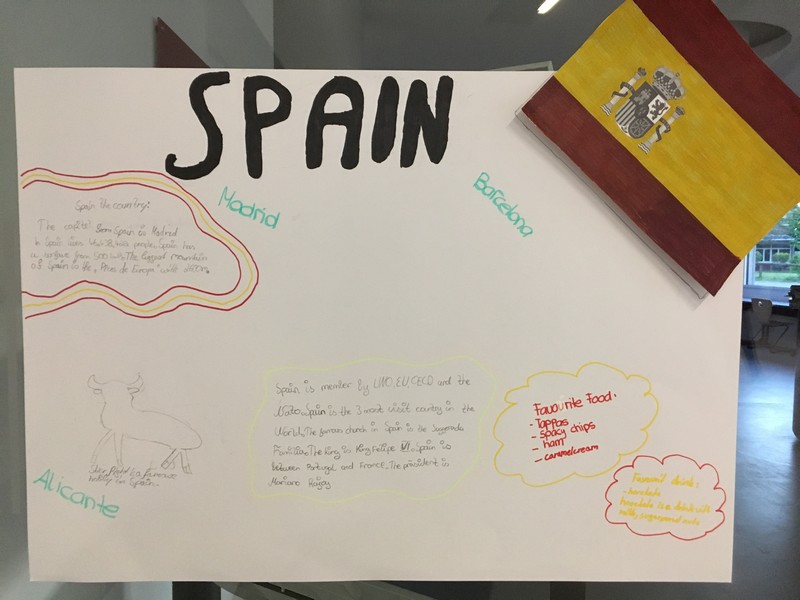 SPAIN
Madrid
Barcelona
Spain the country:
The capital from Spain is Madrid
In Spain lives people. Spain has
a surface from The biggest mountain
of Spain is the "Picos de Europa" with
Spain is member by UNO, EU, OECD and the
Nato. Spain is the 3 most visit country in the
World. The famous church in Spain is the Sagrada
Familia. The King is King Felipe VI. Spain is
between Portugal and France. The president is
Mariano Rajoy
Favourite Food:
- Tappas
- spacy chips
- ham
- caramelcream
Favourit drink:
- horchata
horchata is a drink with
milk, sugar and nuts
is Spain.
Alicante